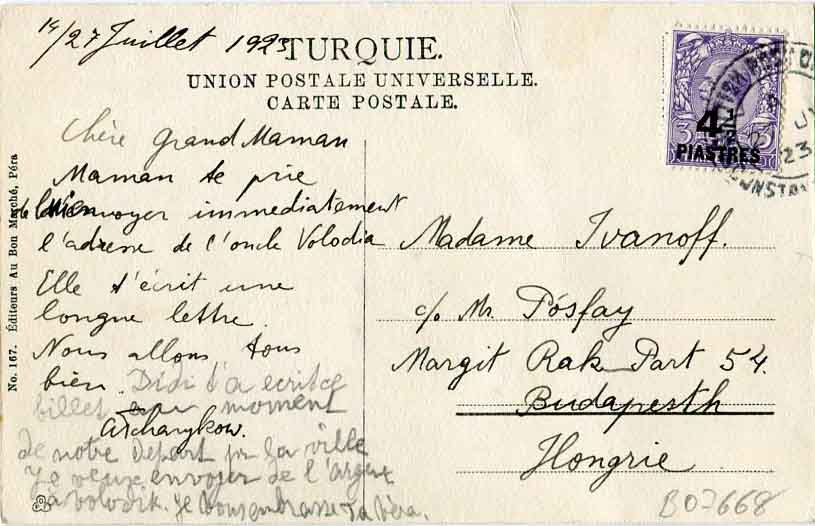 14/27 Juillet 1923
TURQUIE.
UNION POSTALE UNIVERSELLE.
CARTE POSTALE.
4½
PIASTRES
Chère Grand Maman
Maman te prie
de lui envoyer immediatement
l'adresse de l'oncle Volodia
Elle t'écrit une
longue lettre.
Nous allons tous
bien. Didi t'a ecrit ce
billet au moment
de notre depart pr la ville
Je veux envoyer de l'argent
a Volodik. Je vous embrasse ta Vera.
Madame Ivanoff.
c/o Mr. Pósfay
Margit Rak Part 54.
Budapesth
Hongrie
No. 167. Éditeurs Au Bon Marché, Péra
B07668